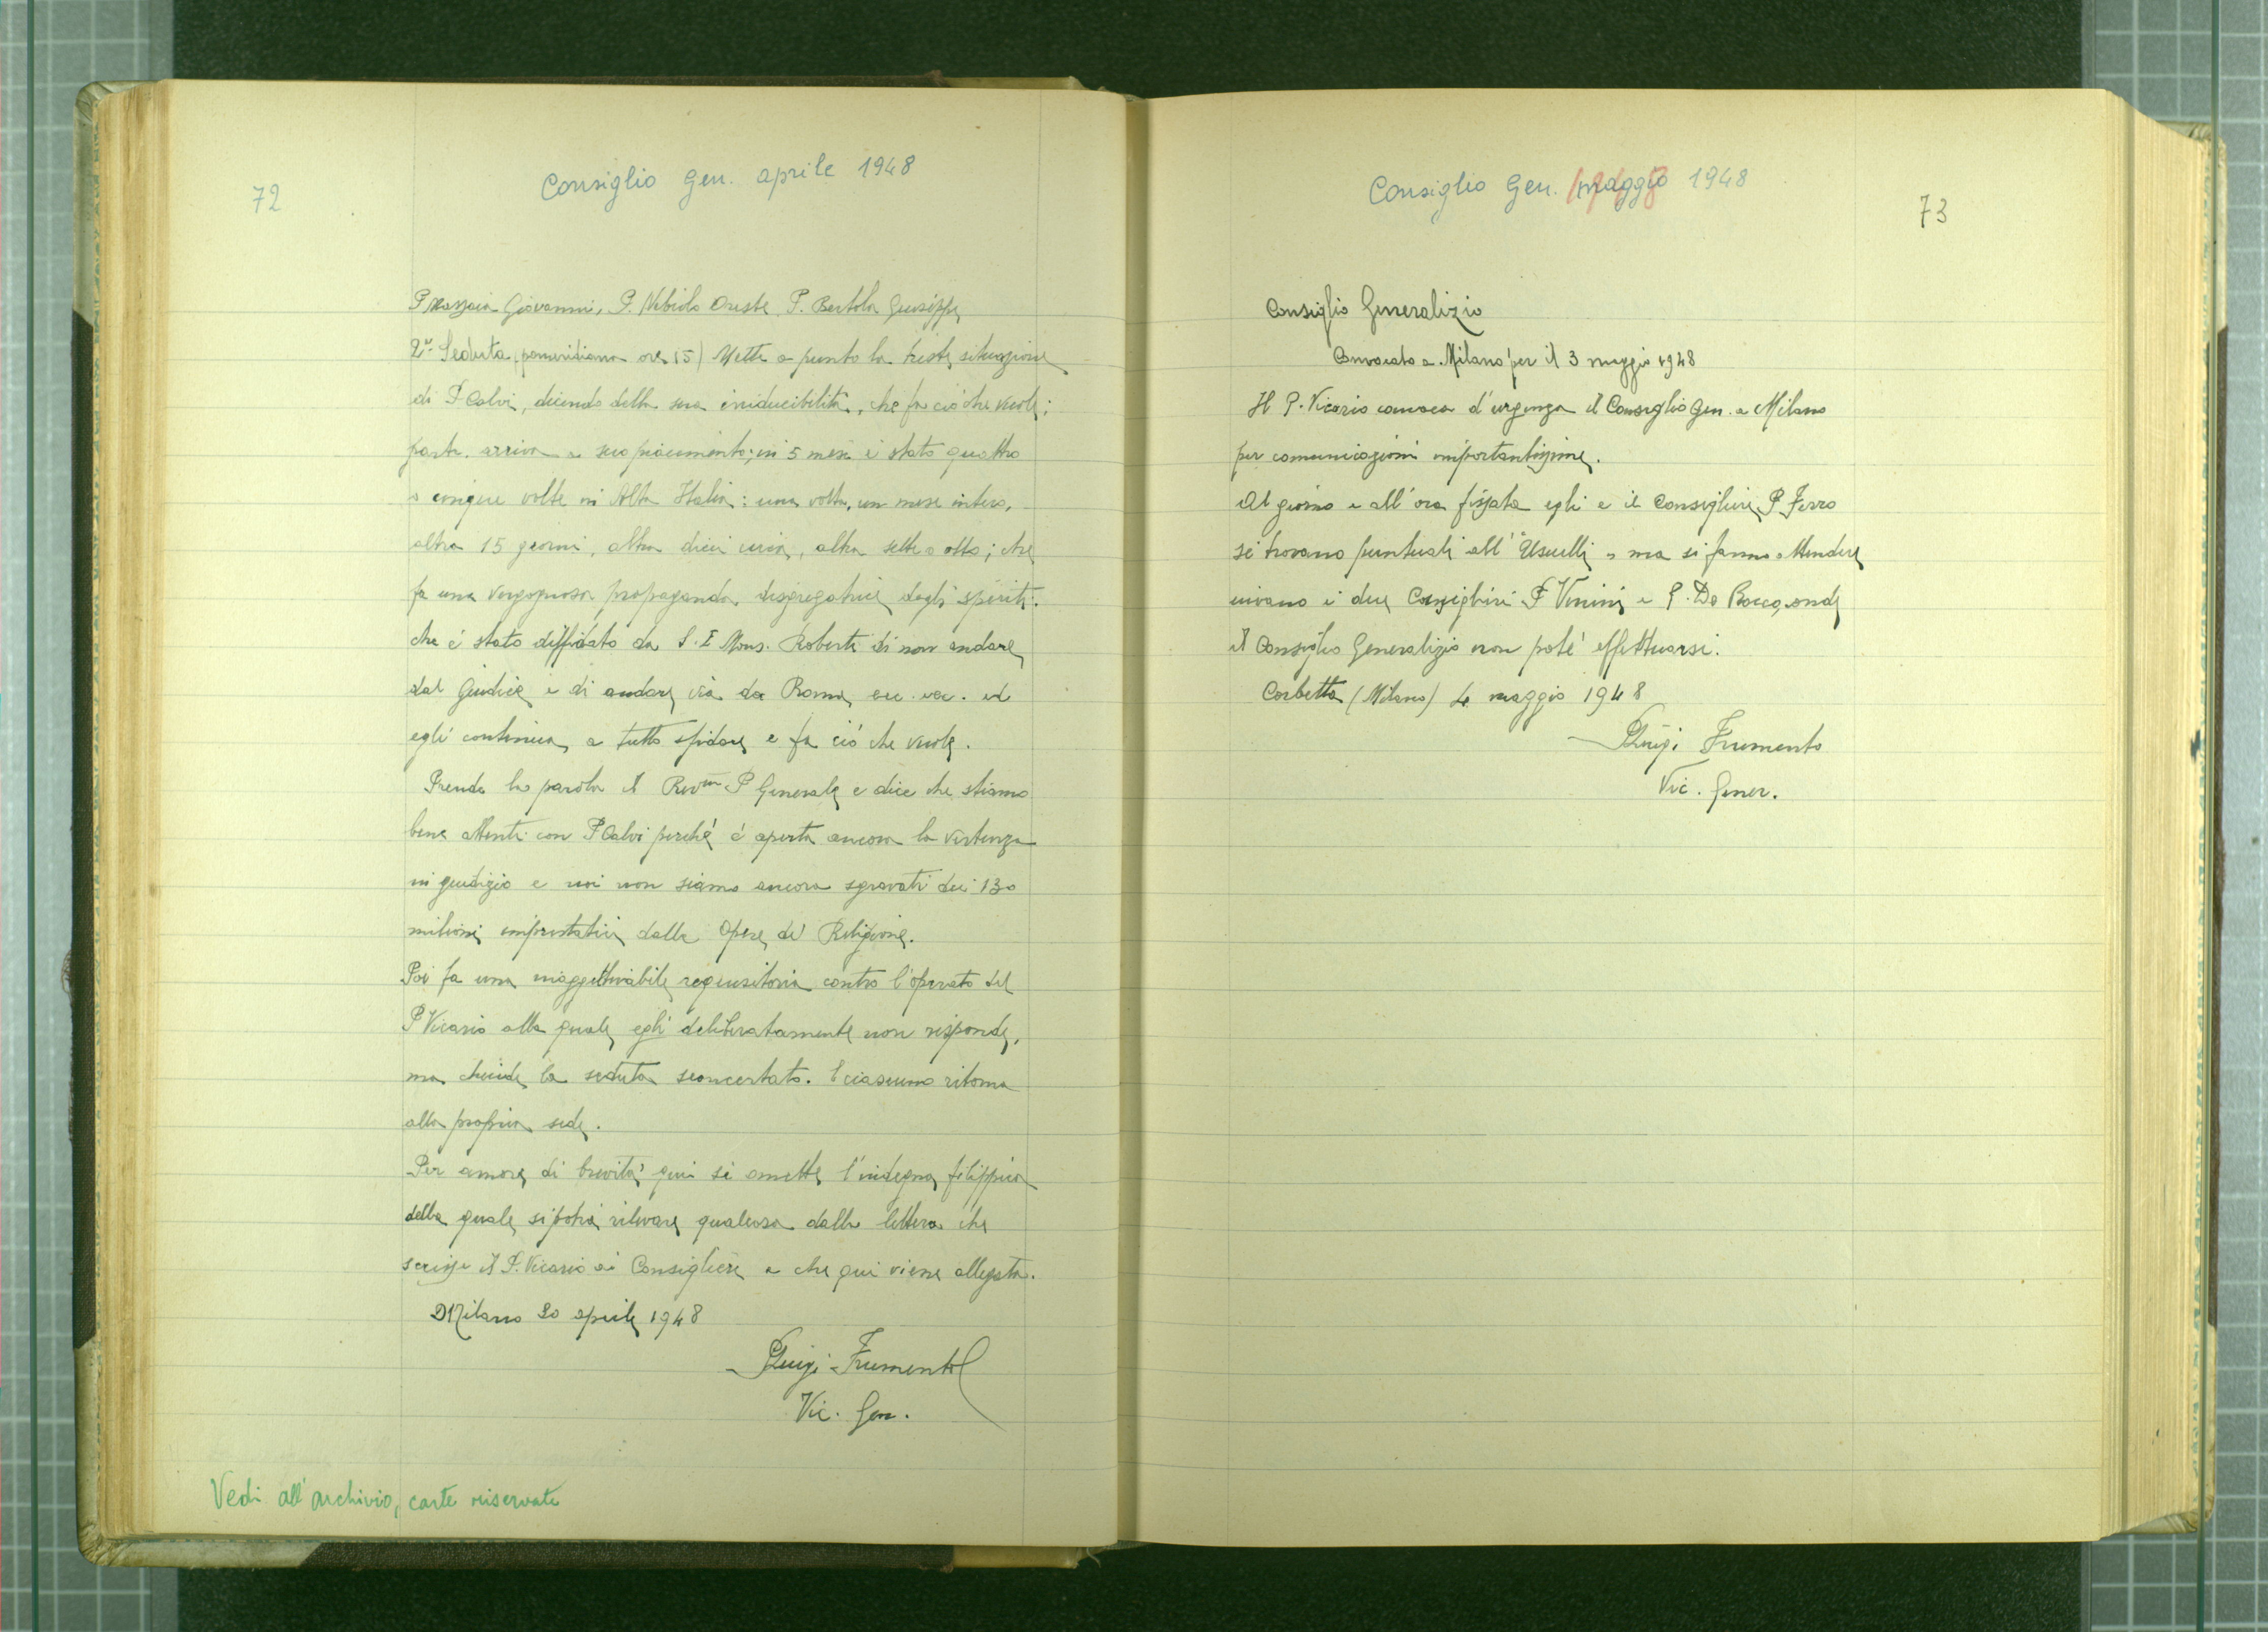 72
Consiglio Gen. aprile 1948
P. Mazzaia Giovanni, P. Nebiolo Oreste, P. Bertola Giuseppe
2ª Seduta (pomeridiana ore 15) Mette a punto la triste situazione
di P. Calvi, dicendo della sua iriducibilità, che fa ciò che vuole;
parte, arriva a suo piacimento; in 5 mesi è stato quattro
o cinque volte in Alta Italia: una volta, un mese intero,
altra 15 giorni, altra dieci, altra sette o otto; che
fa una vergognosa propaganda disgregatrice degli spiriti.
che è stato diffidato da S. E. Mons. Roberti di non andare
dal Giudice e di andare via da Roma ecc. ecc. ed
egli continua a tutto sfidare e fa ciò che vuole.
Prende la parola il Rev.mo P Generale e dice che stiamo
bene attenti con P Calvi perché è aperta ancora la vertenza
in giudizio e noi non siamo ancora sgravati dei 130
milioni imprestatici dalle Opere di Religione.
Poi fa una inaggettivabile requisitoria contro l'operato del
P Vicario alla quale egli deliberatamente non risponde,
ma chiude la seduta sconcertato. E ciascuno ritorna
alla propria sede.
Per amore di brevità qui si omette l'indegna filippica
della quale si potrà rilevare qualcosa dalla lettera che
scrisse il P. Vicario ai Consiglieri e che qui viene allegata.
Milano 20 aprile 1948
P Luigi Frumento
Vic. Gen.
Vedi all'archivio, carte riservate
Consiglio Gen. maggio 1948
73
Consiglio Generalizio
Convocato a Milano per il 3 maggio 1948
Il P. Vicario convoca d'urgenza il Consiglio Gen. a Milano
per comunicazioni importantissime.
Al giorno e all'ora fissata egli e il Consigliere P Ferro
si trovano puntuali all'"Usuelli" ma si fanno attendere
invano i due Consiglieri P Venini e P. De Rocco, onde
il Consiglio Generalizio non poté effettuarsi.
Corbetta (Milano) 4 maggio 1948
P Luigi Frumento
Vic. Gener.